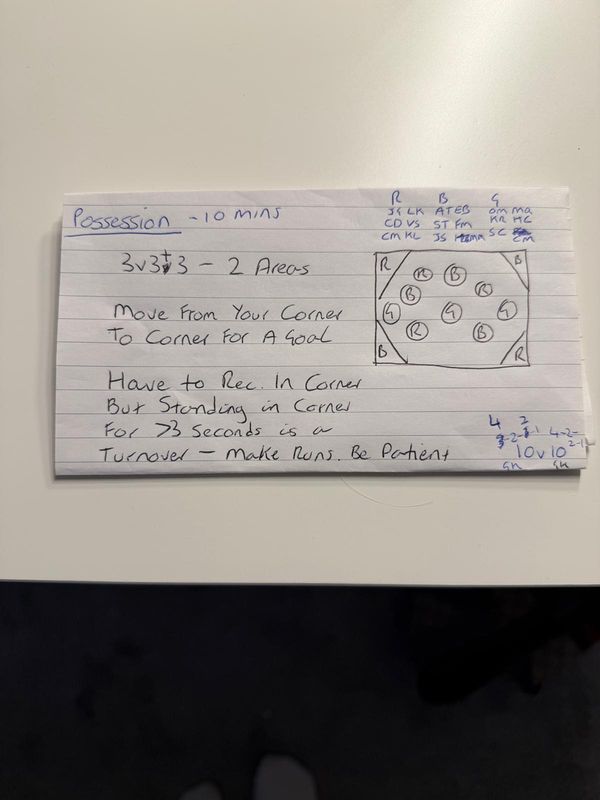 Possession - 10 mins
R B G
JG LK ATEB om ma
CD VS ST Fm KR HC
CM KL JS SC Cm
3v3+3 - 2 Areas
R B
R B
B R
G G G
R B
B R
Move From Your Corner
To Corner For A Goal
Have to Rec. In Corner
But Standing in Corner
For >3 Seconds is a
Turnover - Make Runs. Be Patient
4 2
-2-1 4-2-
2-1
10v10
GK GK